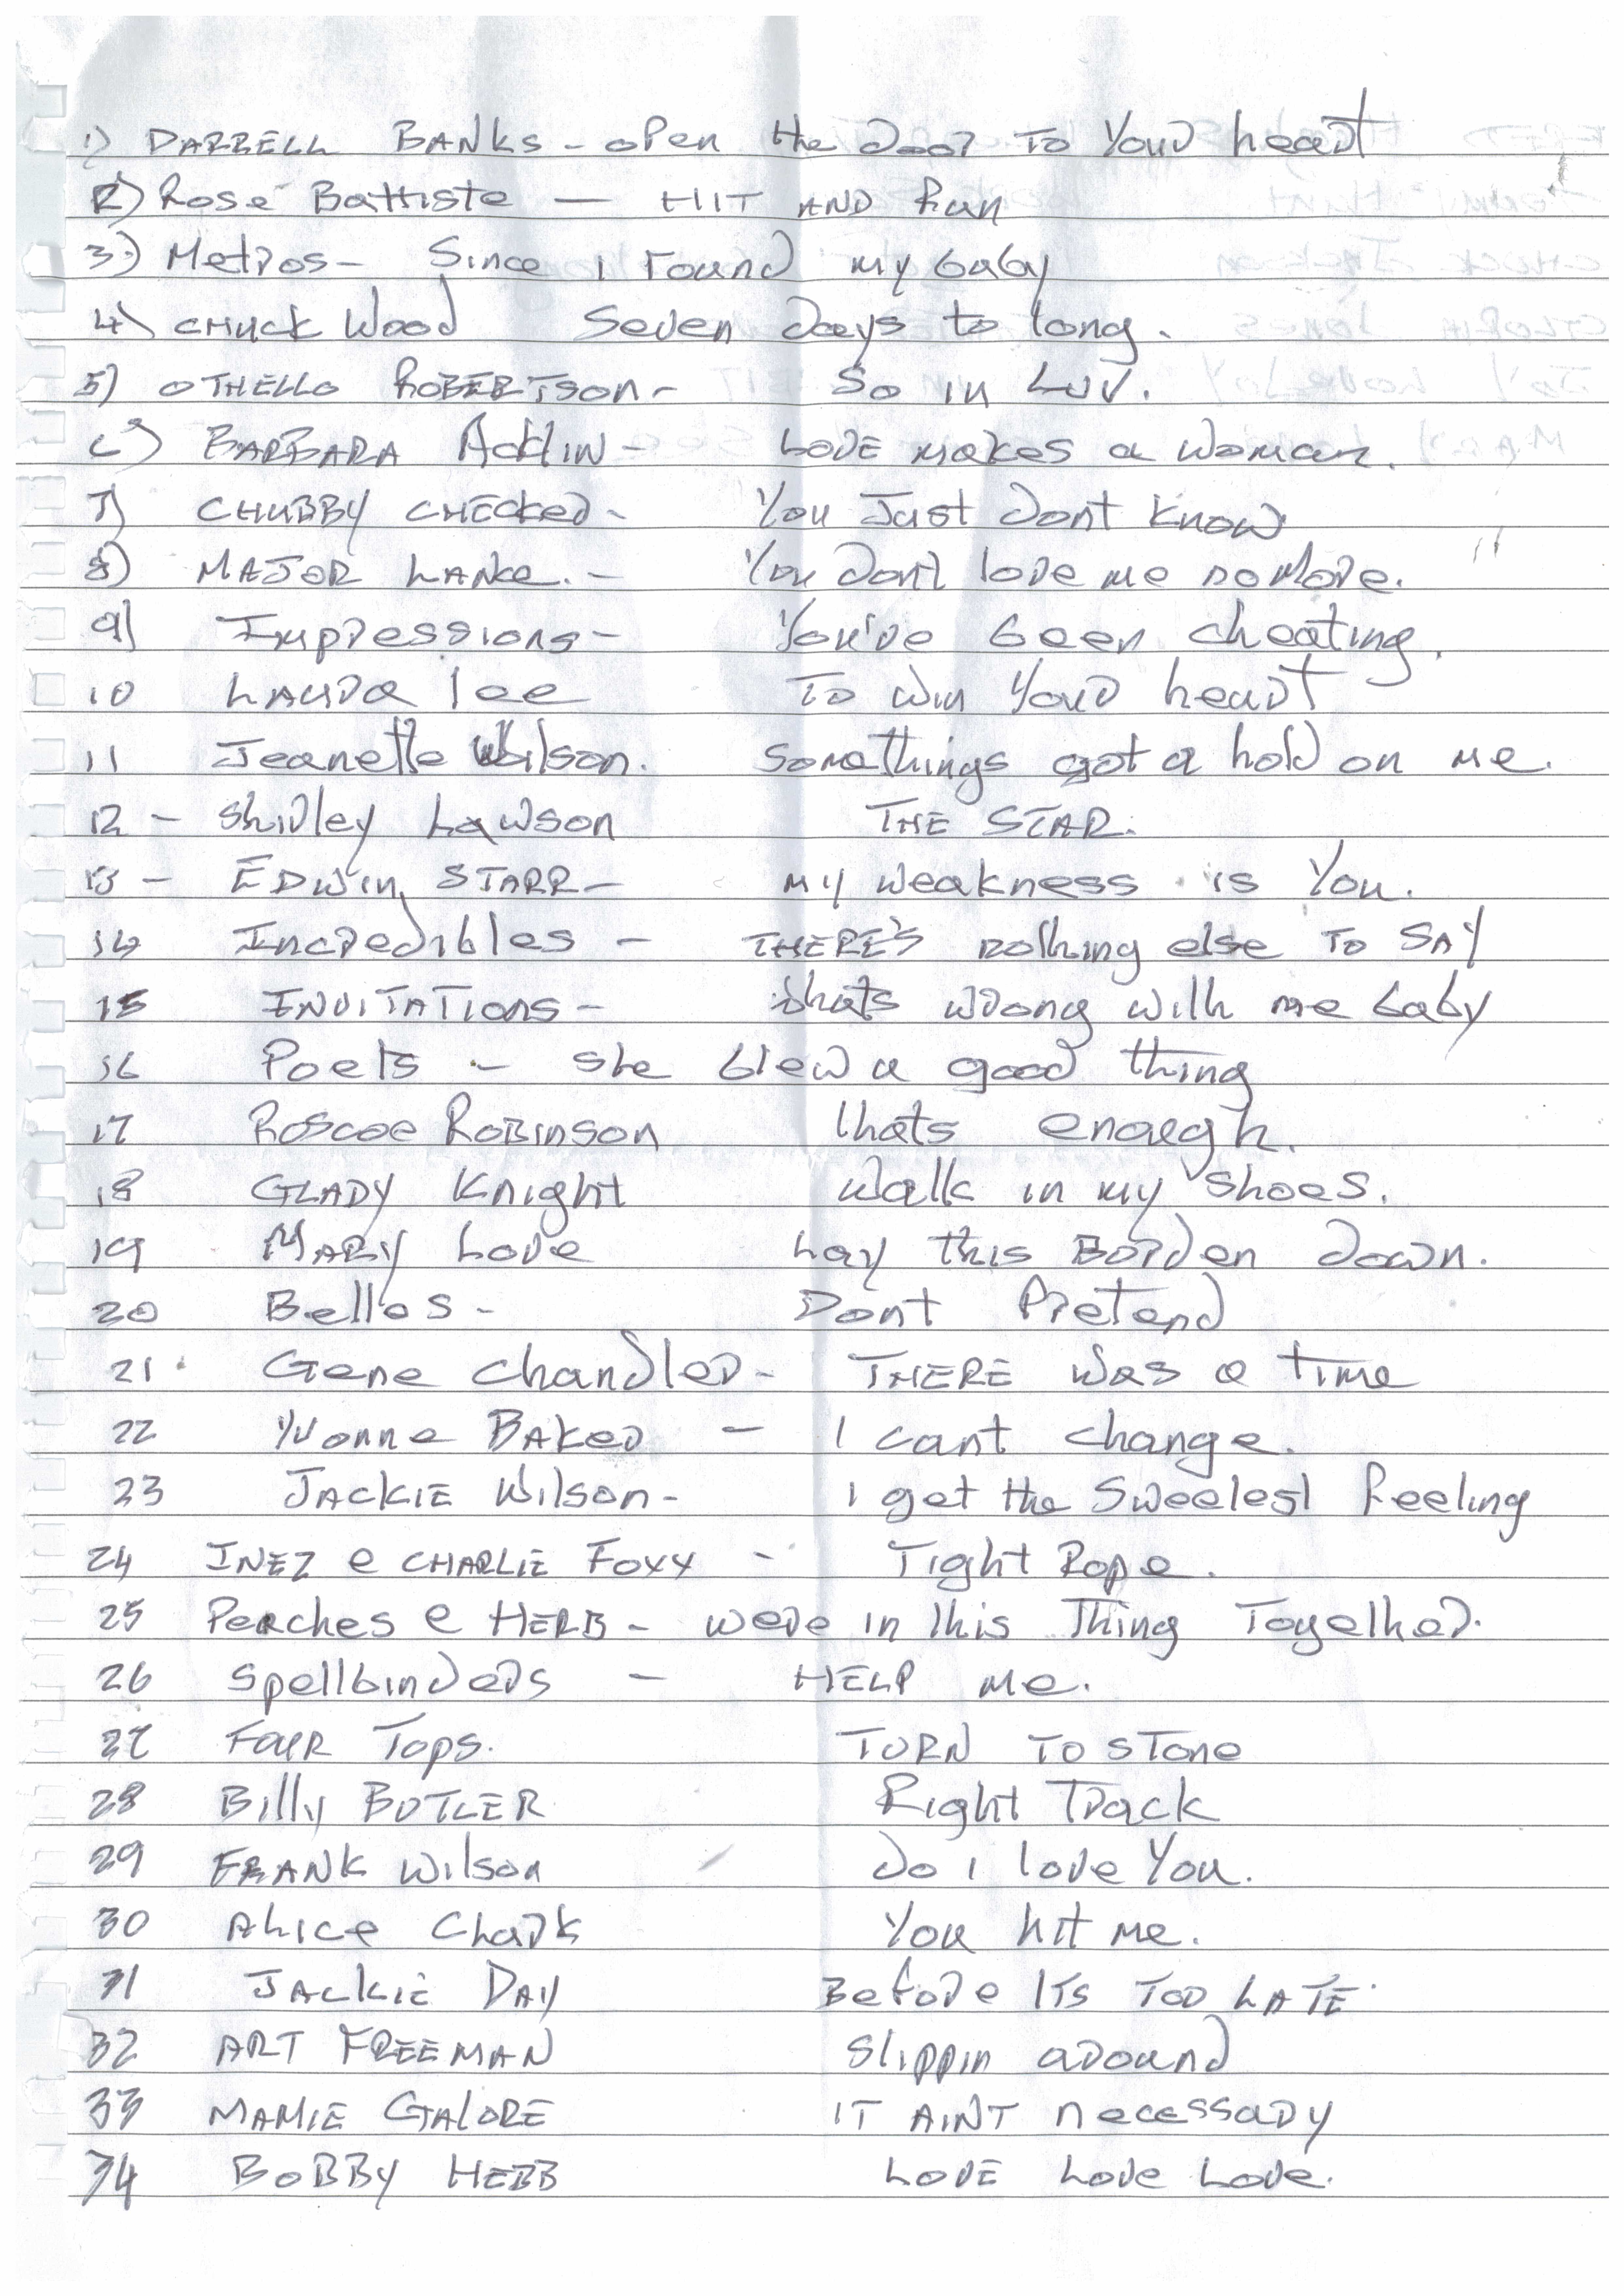 1) DARRELL BANKS - open the door To Your heart
2) Rose Battiste — HIT AND Run
3) Metros - Since I Found my baby
4) CHUCK Wood Seven Days to long.
5) OTHELLO ROBERTSON - So in LUV.
6) BARBARA ACKLIN - LOVE makes a woman.
7) CHUBBY CHECKer - You Just Dont know
8) MAJOR LANCe. - You Dont love me no More.
9) Impressions - You've been cheating.
10 LAURa lee To win Your heart
11 Jeanette Wilson. Somethings got a hold on me.
12 - Shirley Lawson THE STAR.
13 - EDWin STARR - my weakness is You.
14 Incredibles - THERE'S nothing else TO SAY
15 INVITATIons - Whats wrong with me baby
16 Poets - She blew a good thing
17 Roscoe ROBInson thats enough.
18 GLADY Knight Walk in my shoes.
19 MARY Love Lay this BOrDen down.
20 Belles - Dont Pretend
21 Gene Chandler - THERE Was a TIme
22 Yvonne BAKer - I cant change.
23 JACKIE Wilson - I get the Sweetest feeling
24 INEZ e CHARLIE FOXX - Tight Rope.
25 Peaches e HERB - were in this Thing Together.
26 Spellbinders - HELP me.
27 FouR Tops. TURN TO sTone
28 Billy BUTLER Right Track
29 FRANK Wilson Do i love You.
30 ALice Clark You hit me.
31 JACKIE DAY Before ITs TOO LATE.
32 ART FREEMAN Slippin around
33 MAMIE GALORE IT AINT necessary
34 BOBBY HEBB LOVE Love Love.